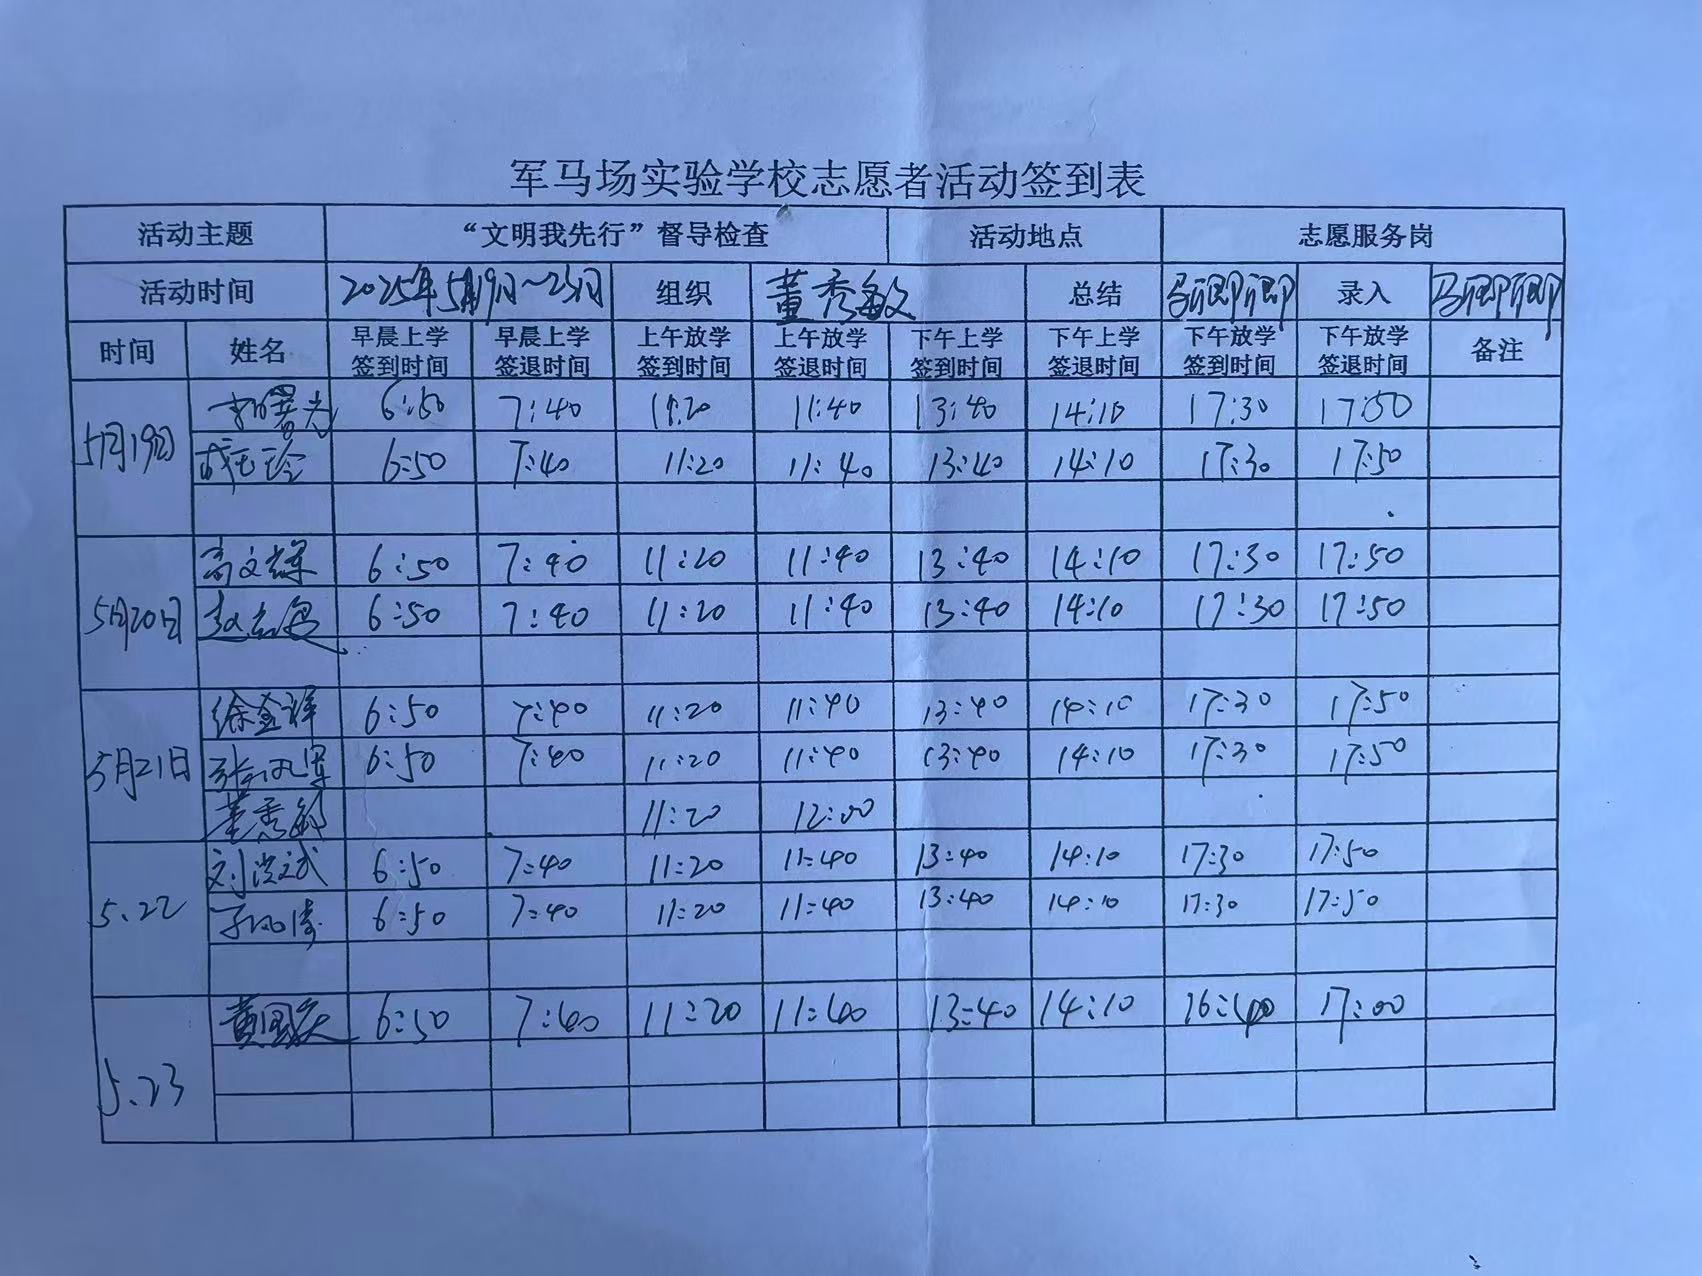 军马场实验学校志愿者活动签到表
活动主题 “文明我先行”督导检查 活动地点 志愿服务岗
活动时间 2025年5月19日~23日 组织 董秀敏 总结 录入
时间 姓名 早晨上学签到时间 早晨上学签退时间 上午放学签到时间 上午放学签退时间 下午上学签到时间 下午上学签退时间 下午放学签到时间 下午放学签退时间 备注
5月19日 6:50 7:40 11:20 11:40 13:40 14:10 17:30 17:50
6:50 7:40 11:20 11:40 13:40 14:10 17:30 17:50
5月20日 高文辉 6:50 7:40 11:20 11:40 13:40 14:10 17:30 17:50
6:50 7:40 11:20 11:40 13:40 14:10 17:30 17:50
5月21日 6:50 7:40 11:20 11:40 13:40 14:10 17:30 17:50
6:50 7:40 11:20 11:40 13:40 14:10 17:30 17:50
董秀敏 11:20 12:00
5.22 刘洪斌 6:50 7:40 11:20 11:40 13:40 14:10 17:30 17:50
6:50 7:40 11:20 11:40 13:40 14:10 17:30 17:50
5.23 黄国庆 6:50 7:40 11:20 11:40 13:40 14:10 16:40 17:00